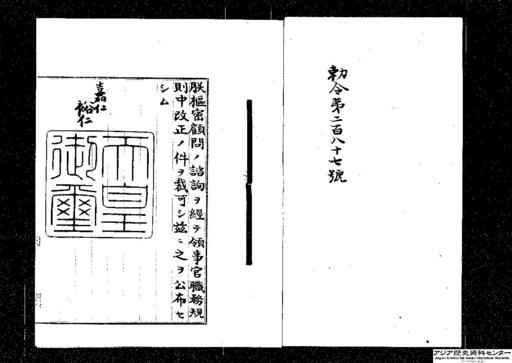 勅令第二百八十七號
朕樞密顧問ノ諮詢ヲ經テ領事官職務規
則中改正ノ件ヲ裁可シ茲ニ之ヲ公布セ
シム
嘉仁
裕仁
天皇
御璽
アジア歴史資料センター
Japan Center for Asian Historical Records